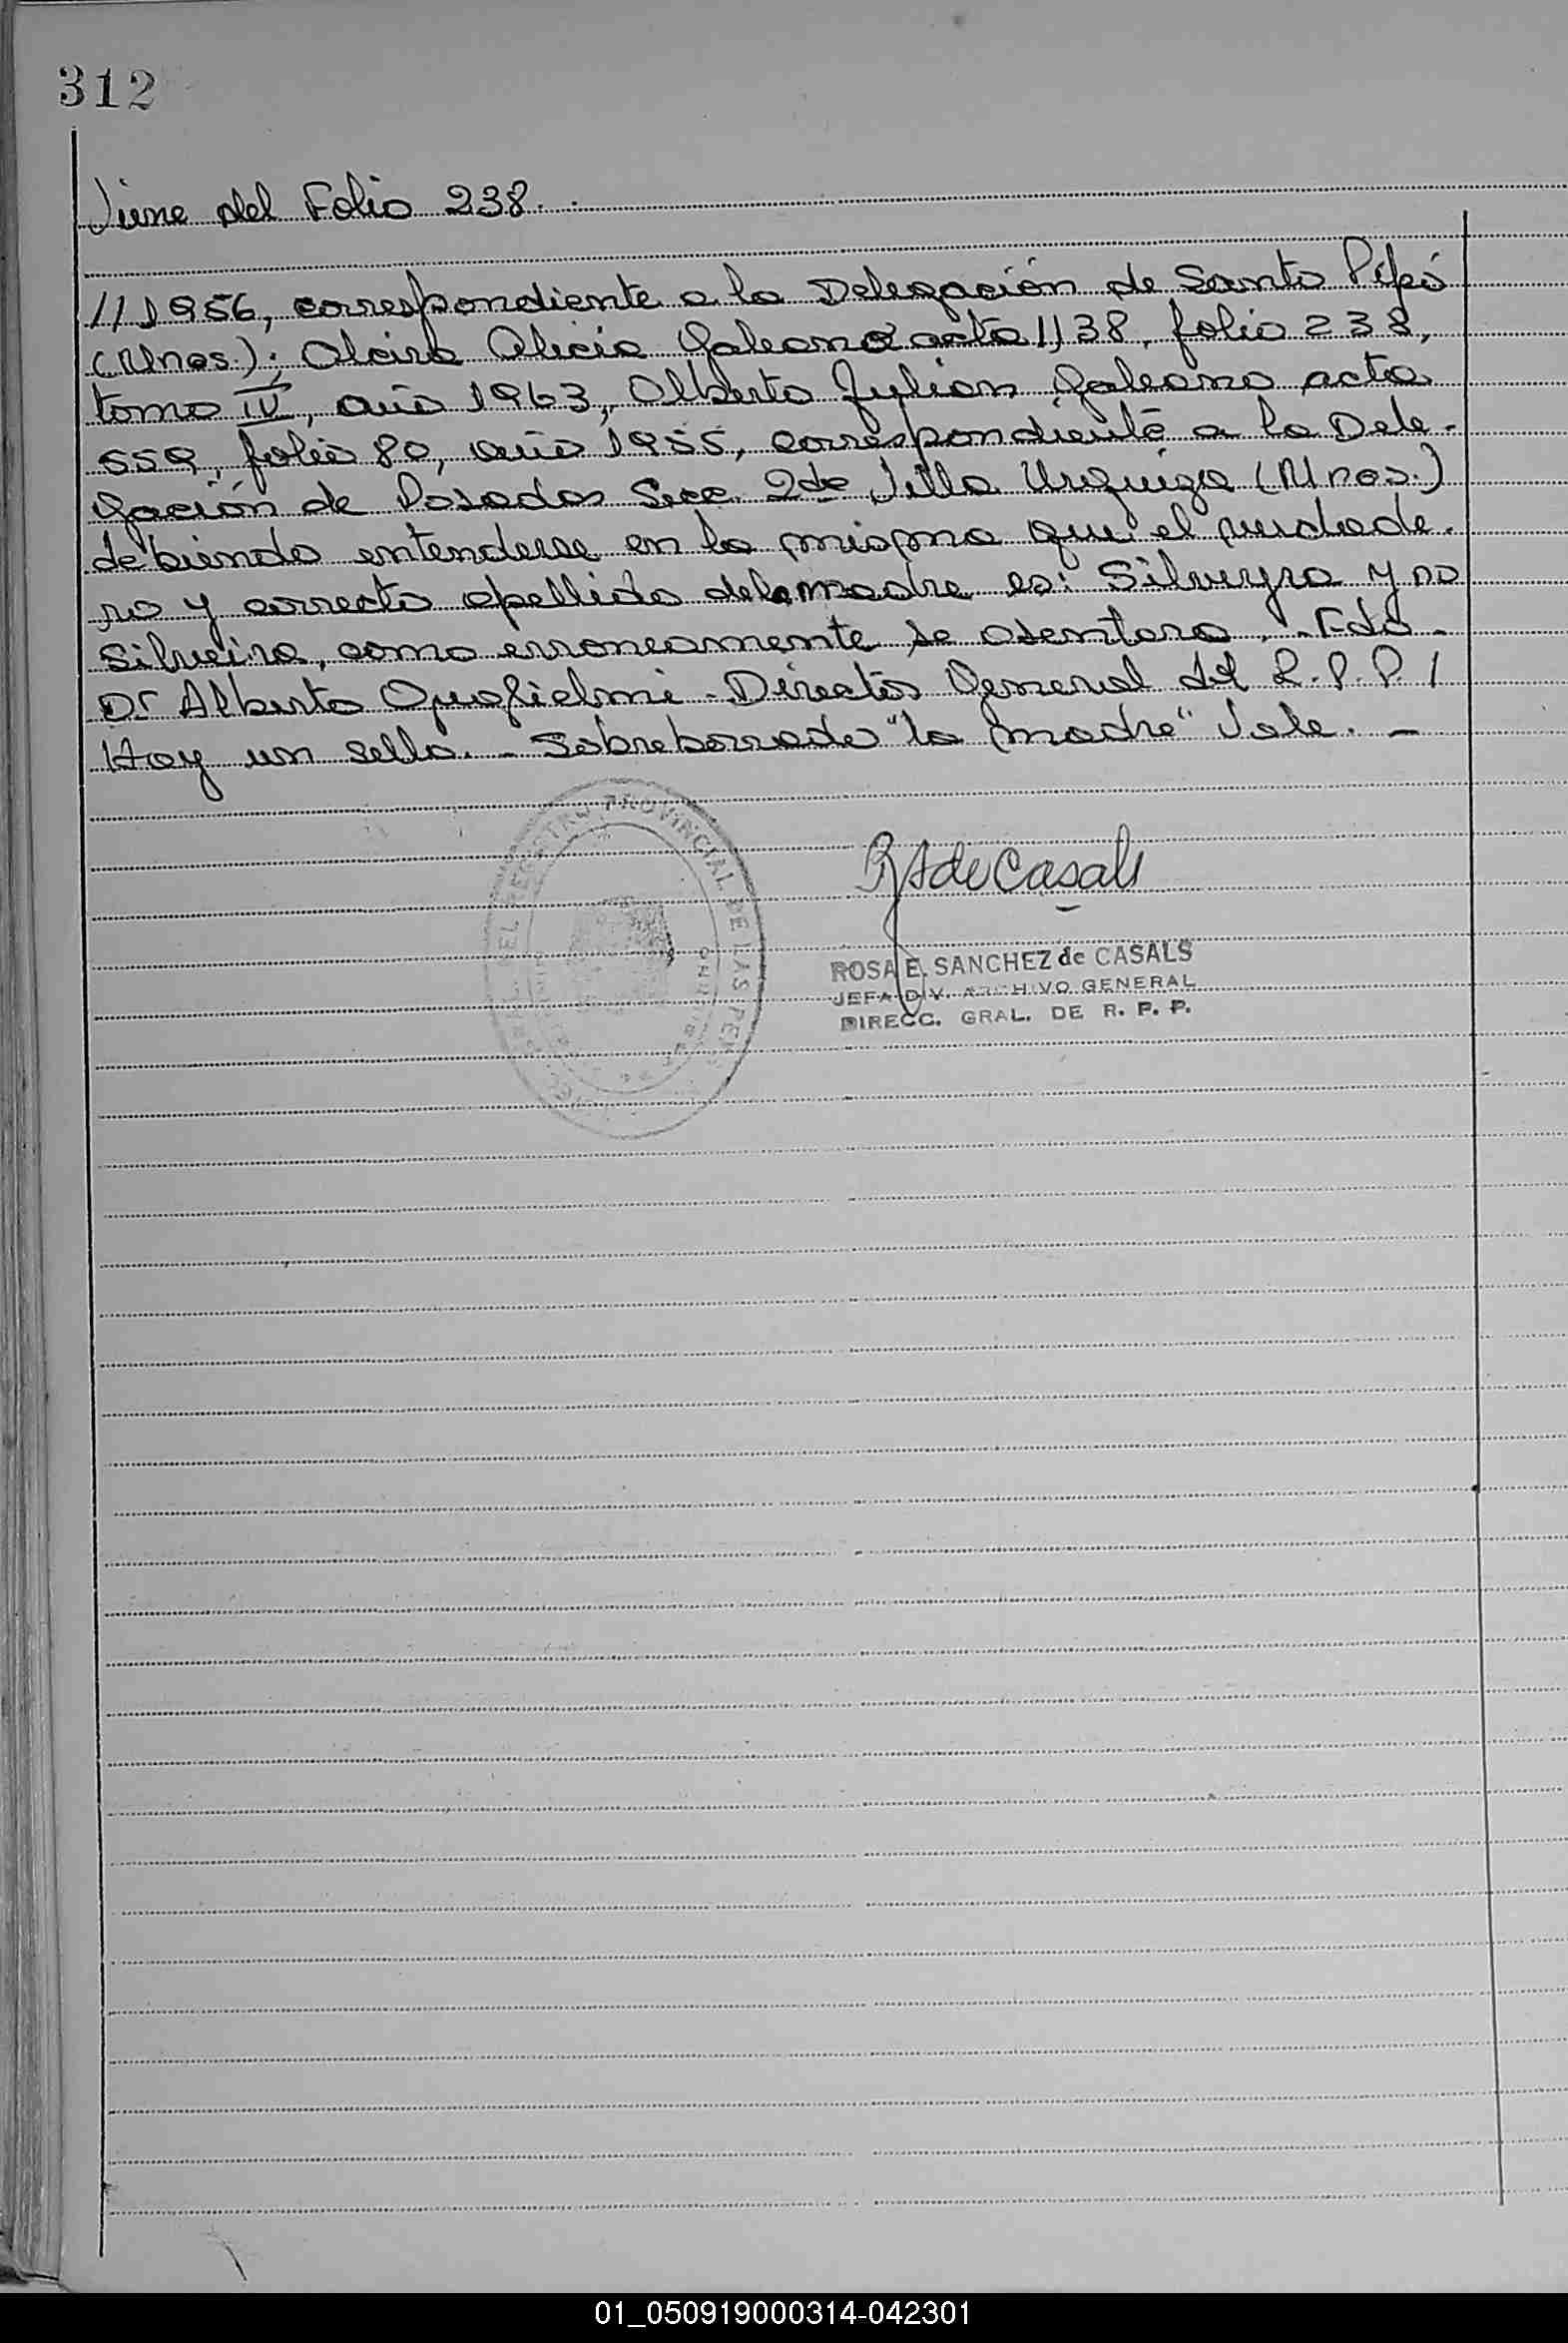 312
Viene del Folio 238. .
// 1956, correspondiente a la Delegación de Santo Pipó
(Mnes.); Alcira Alicia Galeano acta 1138, folio 238,
tomo IV, año 1963, Alberto Julian Galeano acta
559, folio 80, año 1955, correspondiente a la Dele-
gación de Posadas Secc. 2da Villa Urquiza (Mnes.)
debiendo entenderse en la misma que el verdade-
ro y correcto apellido de la madre es: Silveyra y no
Silveira, como erroneamente se asentara. - Fdo -
Dr Alberto Guglielmi - Director General del R.P.P. /
Hay un sello. - Sobreborrado "la madre" Vale. -
REGISTRO PROVINCIAL DE LAS PER
R S de Casals
ROSA E. SANCHEZ de CASALS
JEFA DIV. ARCHIVO GENERAL
DIRECC. GRAL. DE R. P. P.
01_050919000314-042301